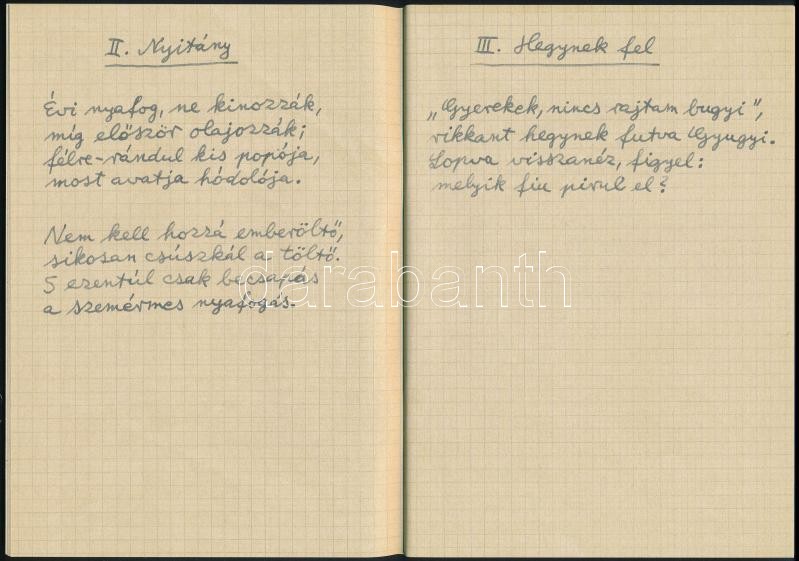 II. Nyitány
Évi nyafog, ne kinozzák,
míg először olajozzák;
félre-rándul kis popója,
most avatja hódolója.
Nem kell hozzá emberöltő,
sikosan csúszkál a töltő.
S ezentúl csak becsapás
a szemérmes nyafogás.
III. Hegynek fel
„Gyerekek, nincs rajtam bugyi”,
rikkant hegynek futva Gyugyi.
Lopva visszanéz, figyel:
melyik fiu pirul el?
darabanth